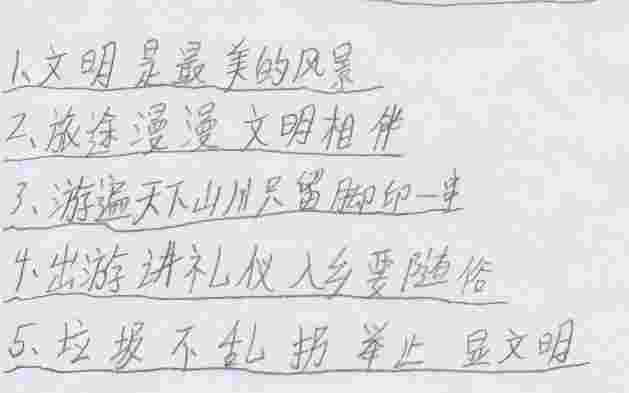 1、文明是最美的风景
2、旅途漫漫 文明相伴
3、游遍天下山川只留脚印一串
4、出游讲礼仪入乡要随俗
5、垃圾不乱拐 举止显文明